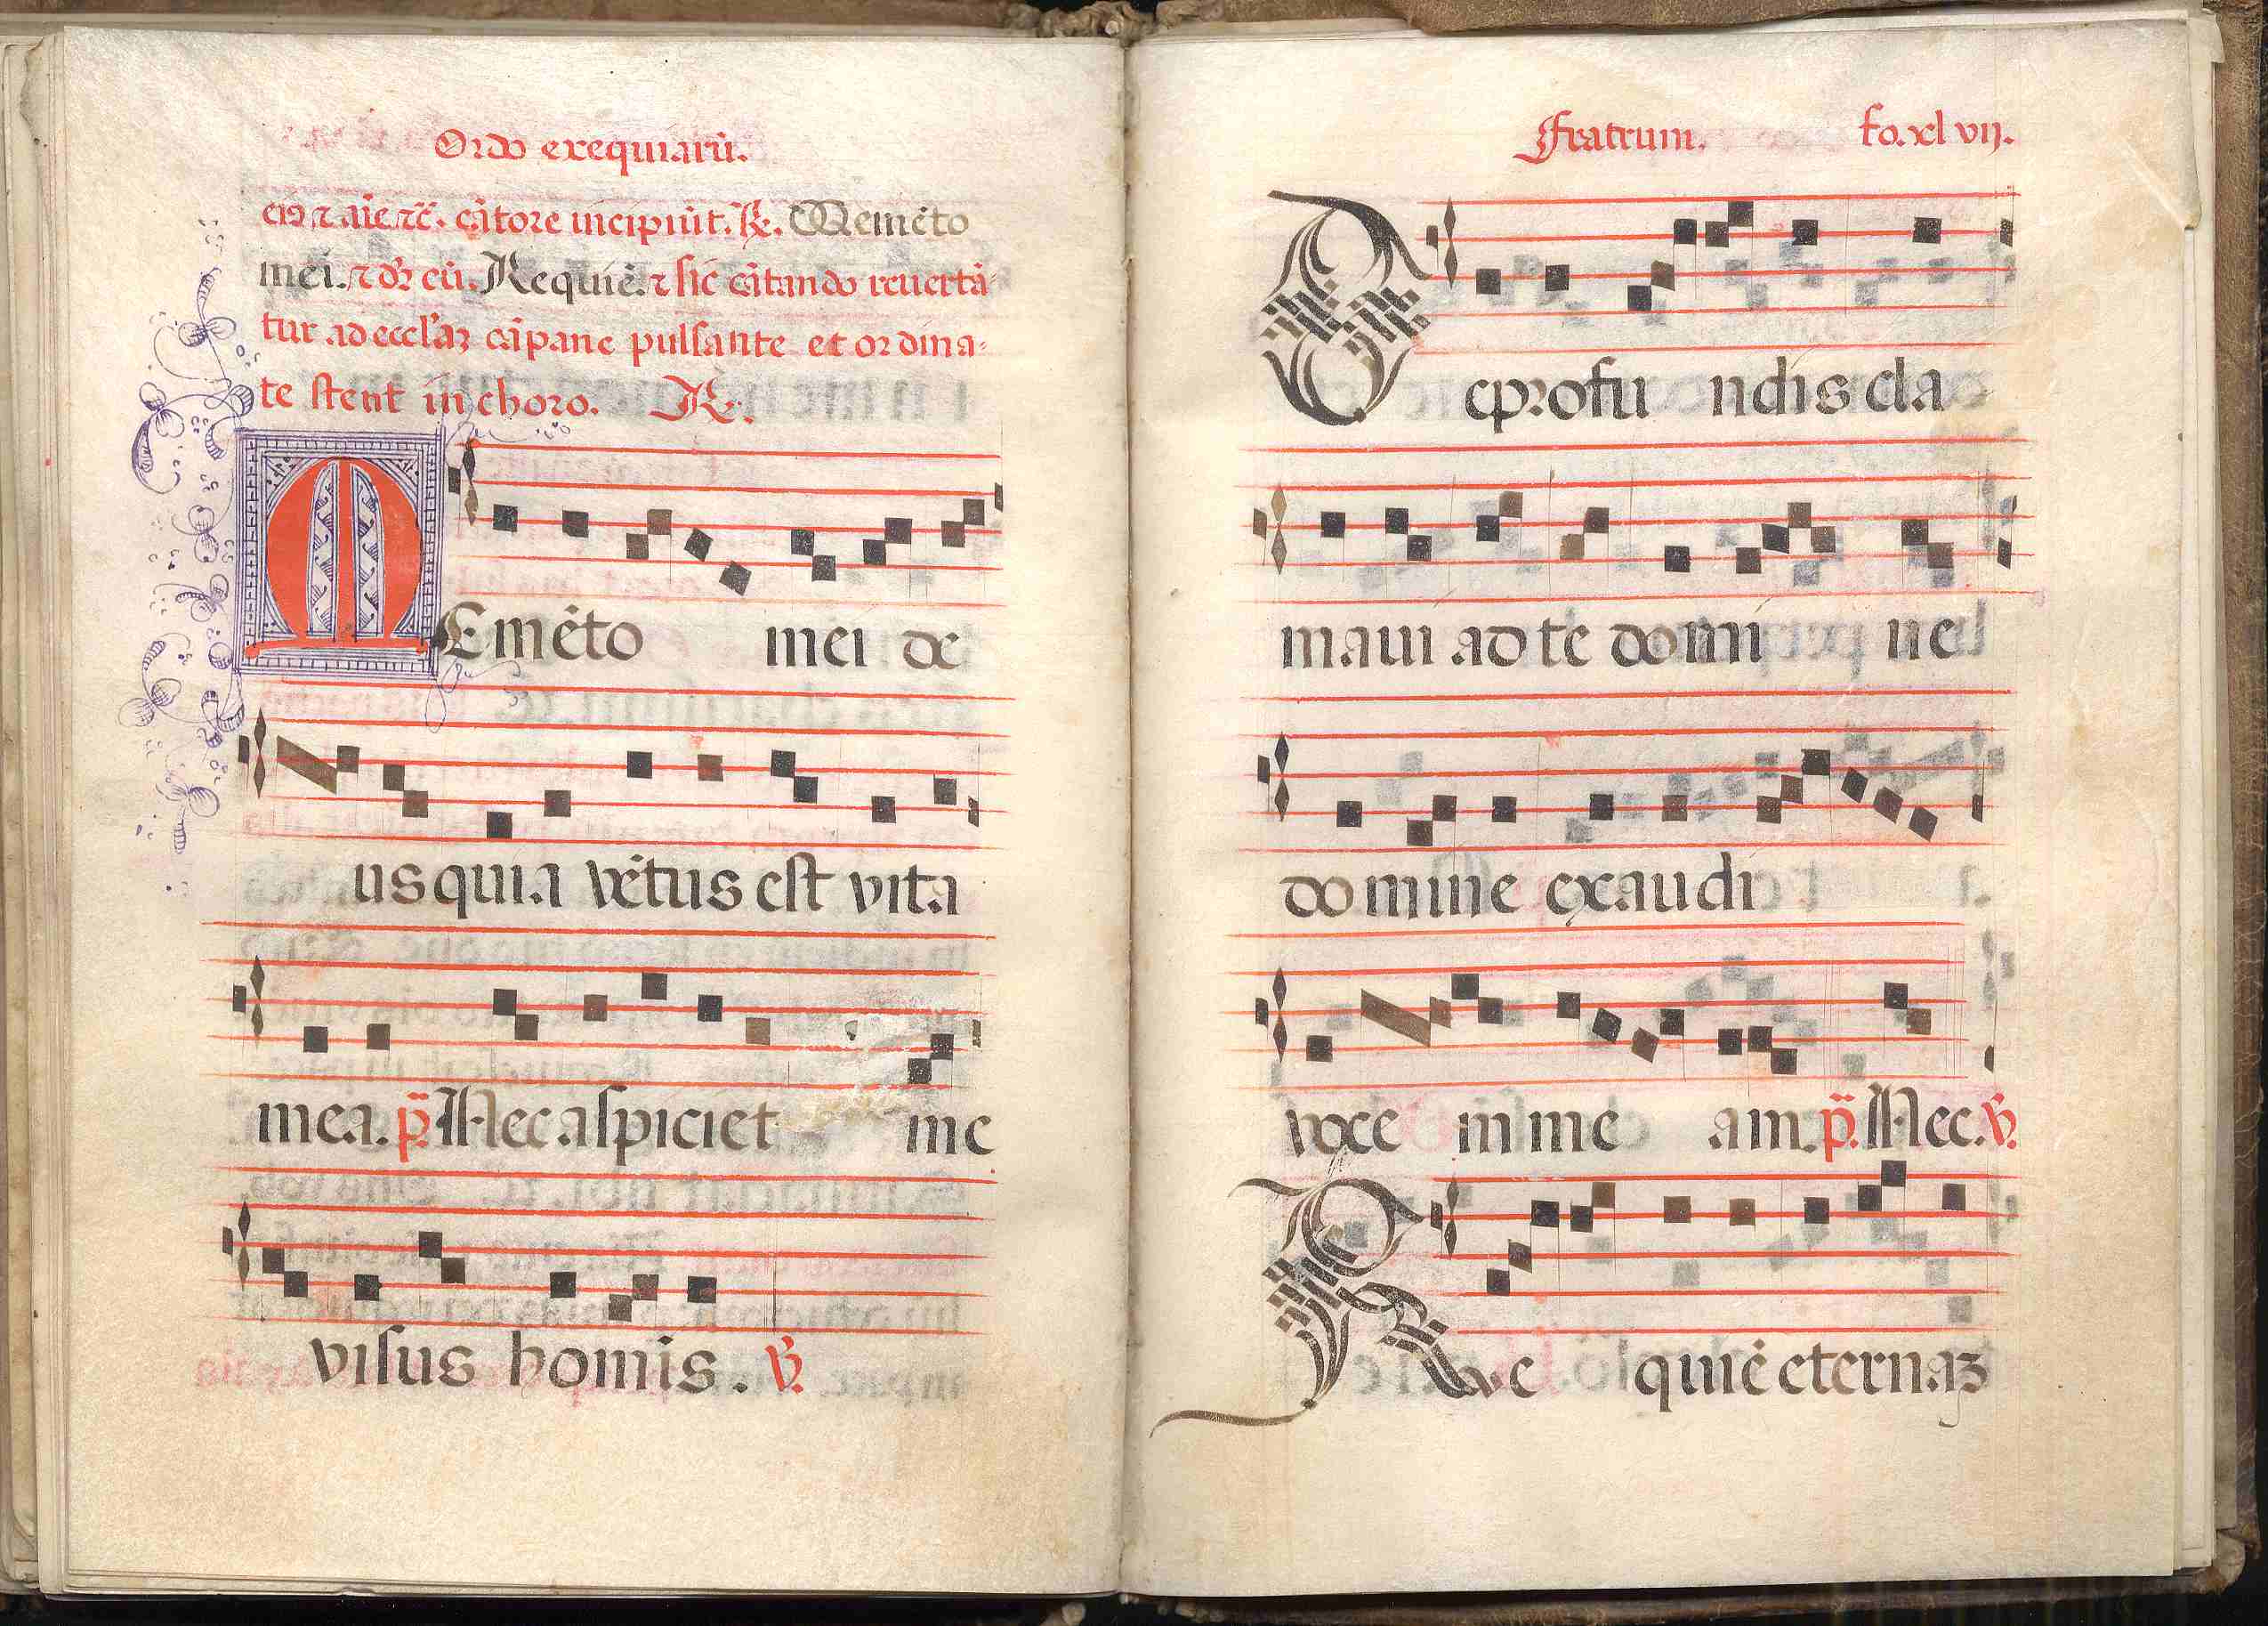 Ordo exequiarũ.
eis ⁊ aĩe ⁊c̃. cãtore incipiũt. ℟. Memẽto
mei. ⁊ dr̃ eũ. Requiẽ. ⁊ sic cãtando reuertã
tur ad eccl'aꝫ cãpane pulsante et ordina-
te stent in choro. ℟.
MEmẽto mei de
us quia vẽtus est vita
mea. p̃. Nec aspiciet me
visus homĩs. ℣.
Fratrum. fo. xl vij.
De profundis cla
maui ad te domi ne
domine exaudi
voce m me am. p̃. Nec. ℣.
Re quiẽ eternaꝫ